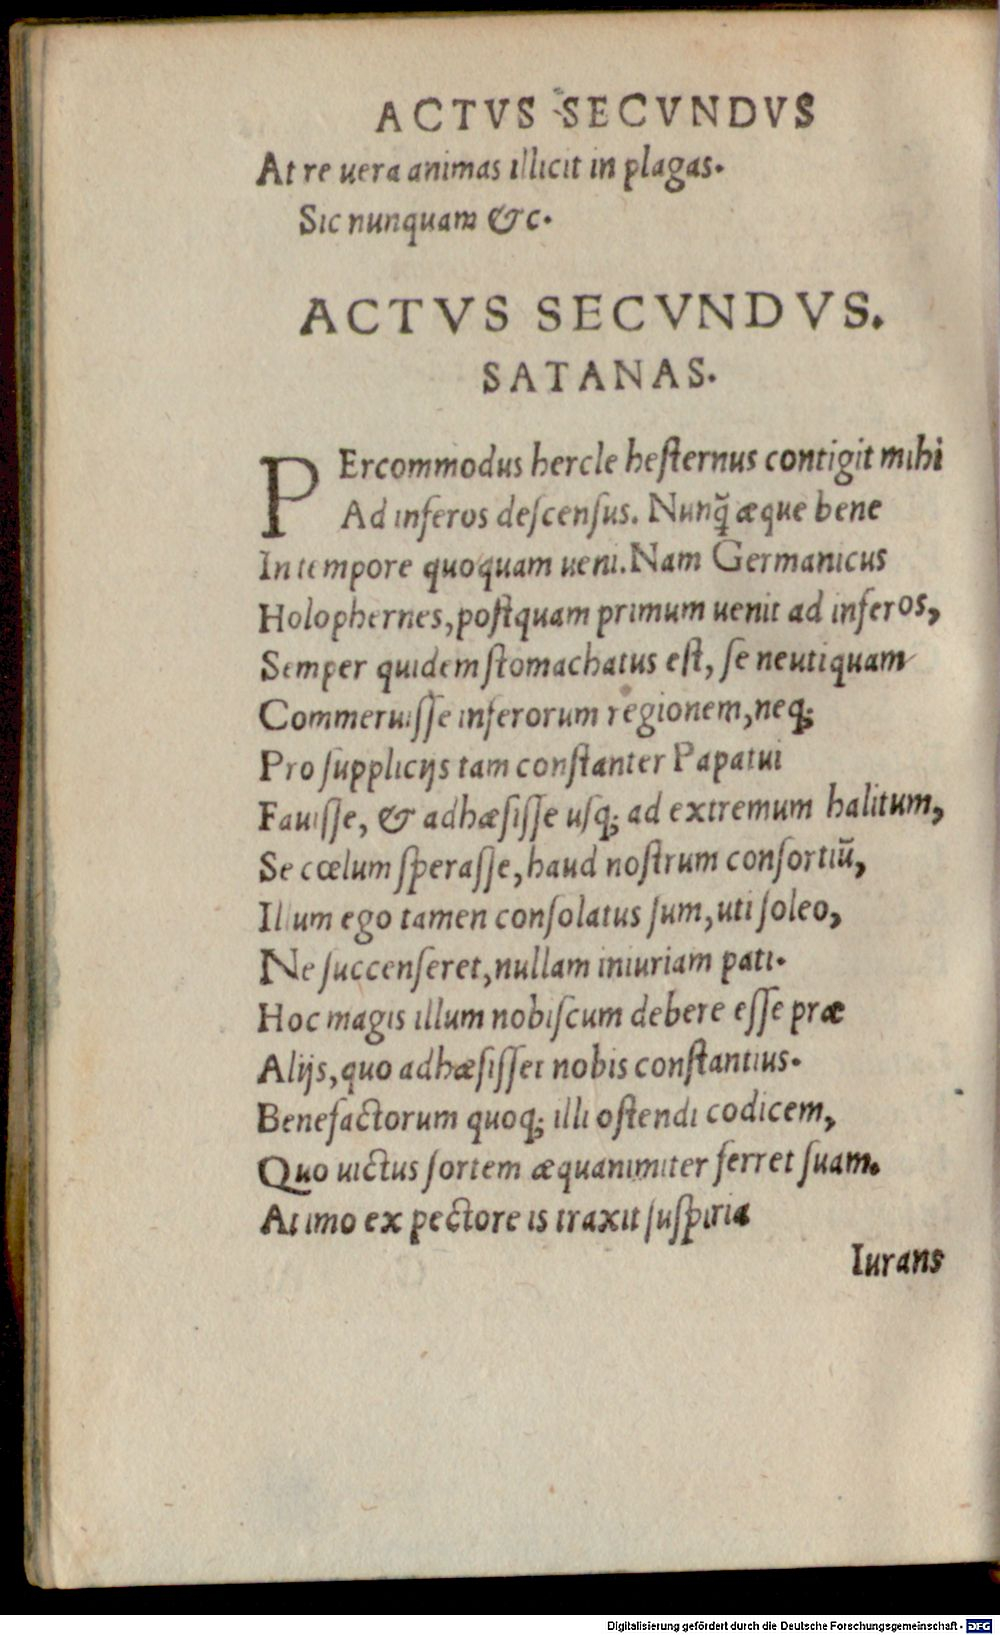 ACTVS SECVNDVS
At re uera animas illicit in plagas.
Sic nunquam &c.
ACTVS SECVNDVS.
SATANAS.
PErcommodus hercle hesternus contigit mihi
Ad inferos descensus. Nunq̃ æque bene
In tempore quoquam ueni. Nam Germanicus
Holophernes, postquam primum uenit ad inferos,
Semper quidem stomachatus est, se neutiquam
Commeruisse inferorum regionem, neq;
Pro supplicijs tam constanter Papatui
Fauisse, & adhæsisse usq; ad extremum halitum,
Se cœlum sperasse, haud nostrum consortiũ,
Illum ego tamen consolatus sum, uti soleo,
Ne succenseret, nullam iniuriam pati.
Hoc magis illum nobiscum debere esse præ
Alijs, quo adhæsisset nobis constantius.
Benefactorum quoq; illi ostendi codicem,
Quo uictus sortem æquanimiter ferret suam.
At imo ex pectore is traxit suspiria
Iurans
Digitalisierung gefördert durch die Deutsche Forschungsgemeinschaft - DFG